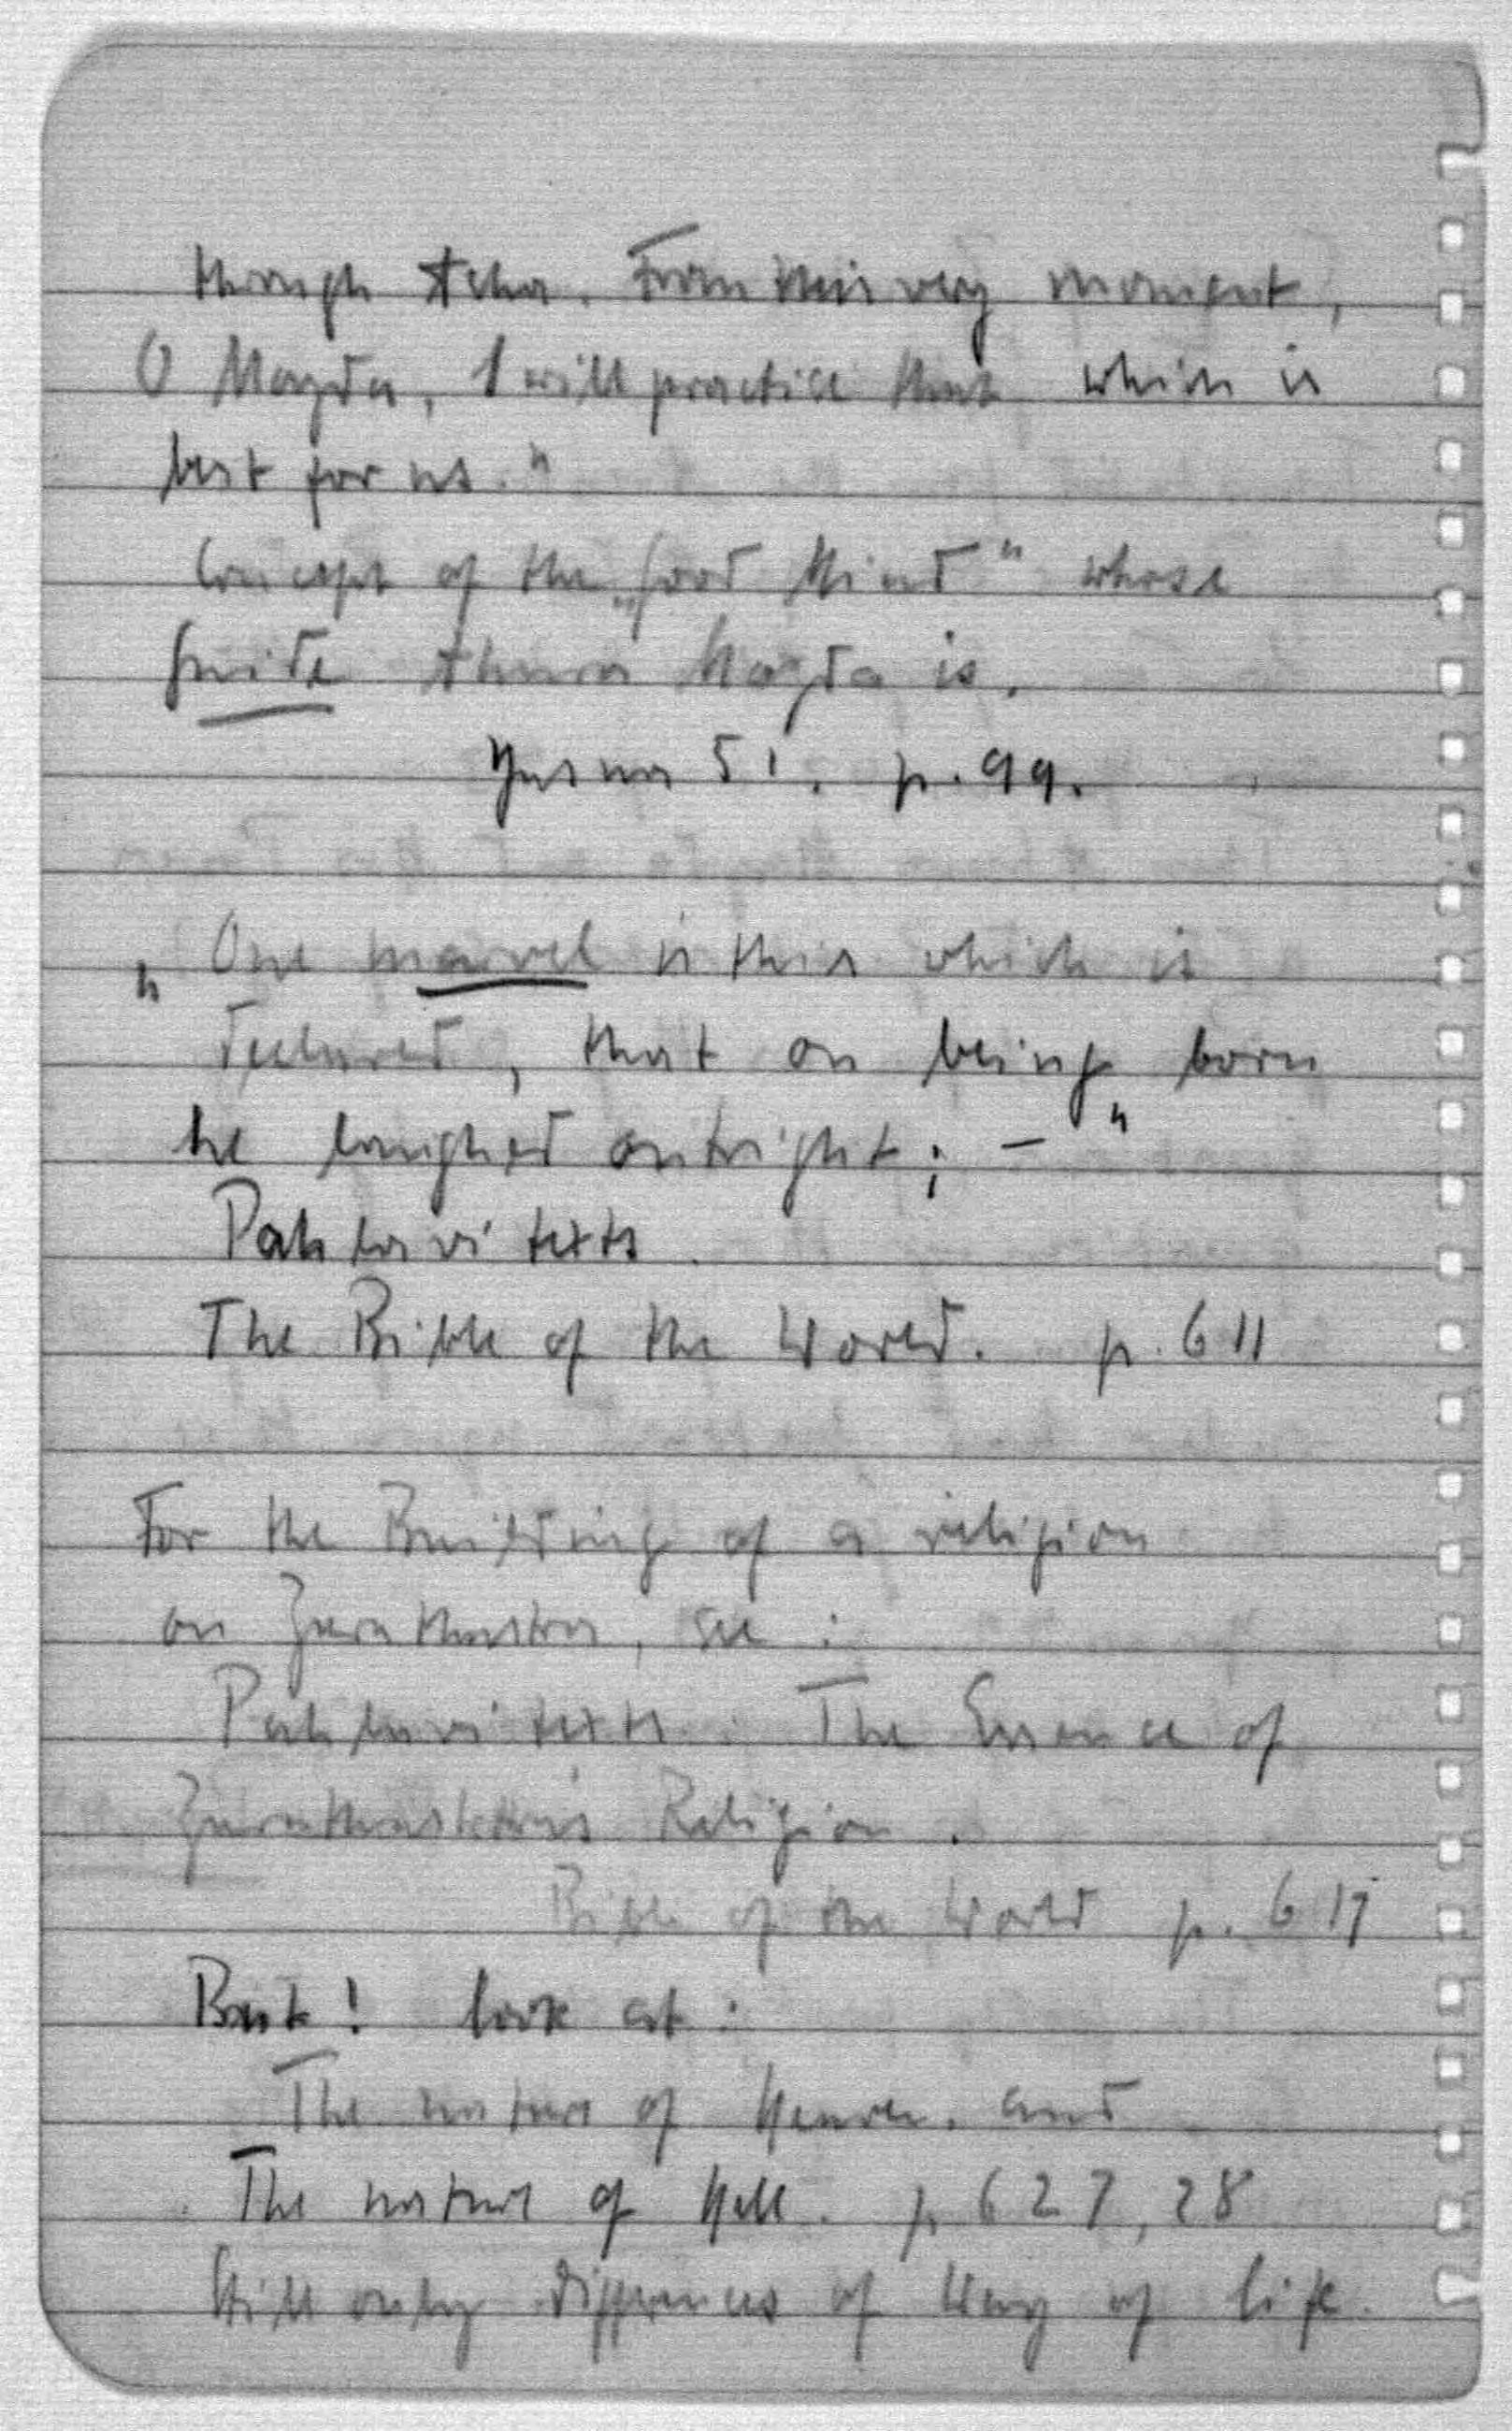 through Asha. From this very moment,
O Mazda, I will practice that which is
best for us."
Concept of the „Good Mind" whose
guide Ahura Mazda is.
Yasna 51. p. 99.
„One marvel is this which is
declared, that on being born
he laughed outright; — "
Pahlavi texts
The Bible of the World. p. 611
For the Building of a religion
on Zarathustra, see :
Pahlavi texts. The Essence of
Religion.
Bible of the World p. 617
But! look at :
The nature of Heaven. and
The nature of Hell. p. 627, 28
Still only differences of Way of life.